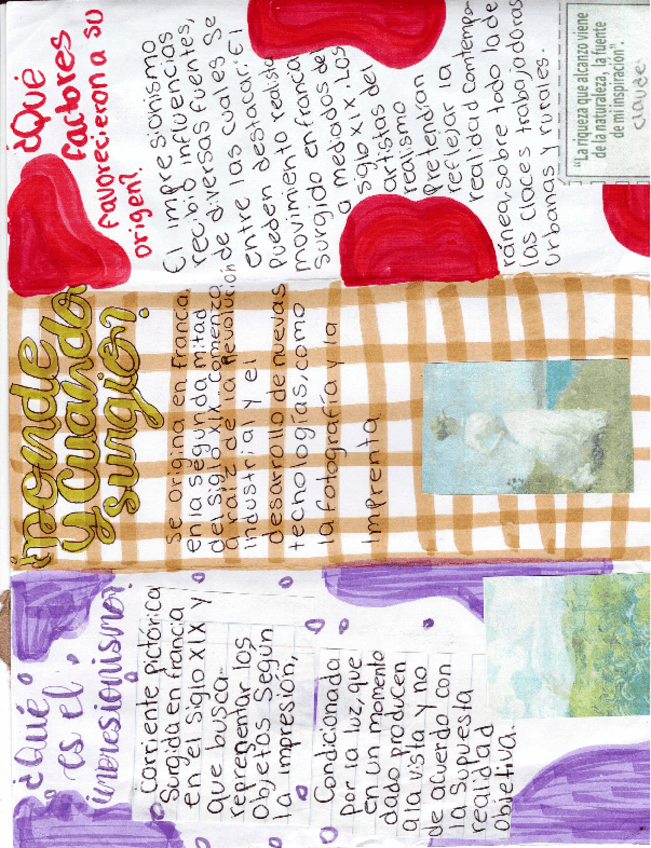 ¿Qué
es el
impresionismo?
corriente pictórica
Surgida en francia
en el Siglo XIX y
que busca-
reprementar los
Objetos Según
la impresión,
Condicionada
por la luz, que
en un momento
dado producen
a la vista y no
de acuerdo con
la Supuesta
realidad
Objetiva.
¿Donde
y cuando
surgio?
se origina en franca,
en la segunda mitad
del siglo XIX. comenzo
a raiz de la Revolución
industrial y el
desarrollo de nuevas
tecnologías, como
la fotografía y la
Imprenta
¿Qué
factores
favorecieron a su
origen?
El impresionismo
recibió influencias
de diversas fuentes,
entre las cuales se
pueden destacar: El
movimiento realista
surgido en francia
a mediados del
siglo XIX. Los
artistas del
realismo
Pretendían
reflejar la
realidad Contempo-
ránea, sobre todo la de
las claces trabajadoras
urbanas y rurales-
"La riqueza que alcanzo viene
de la naturaleza, la fuente
de mi inspiración".
claude